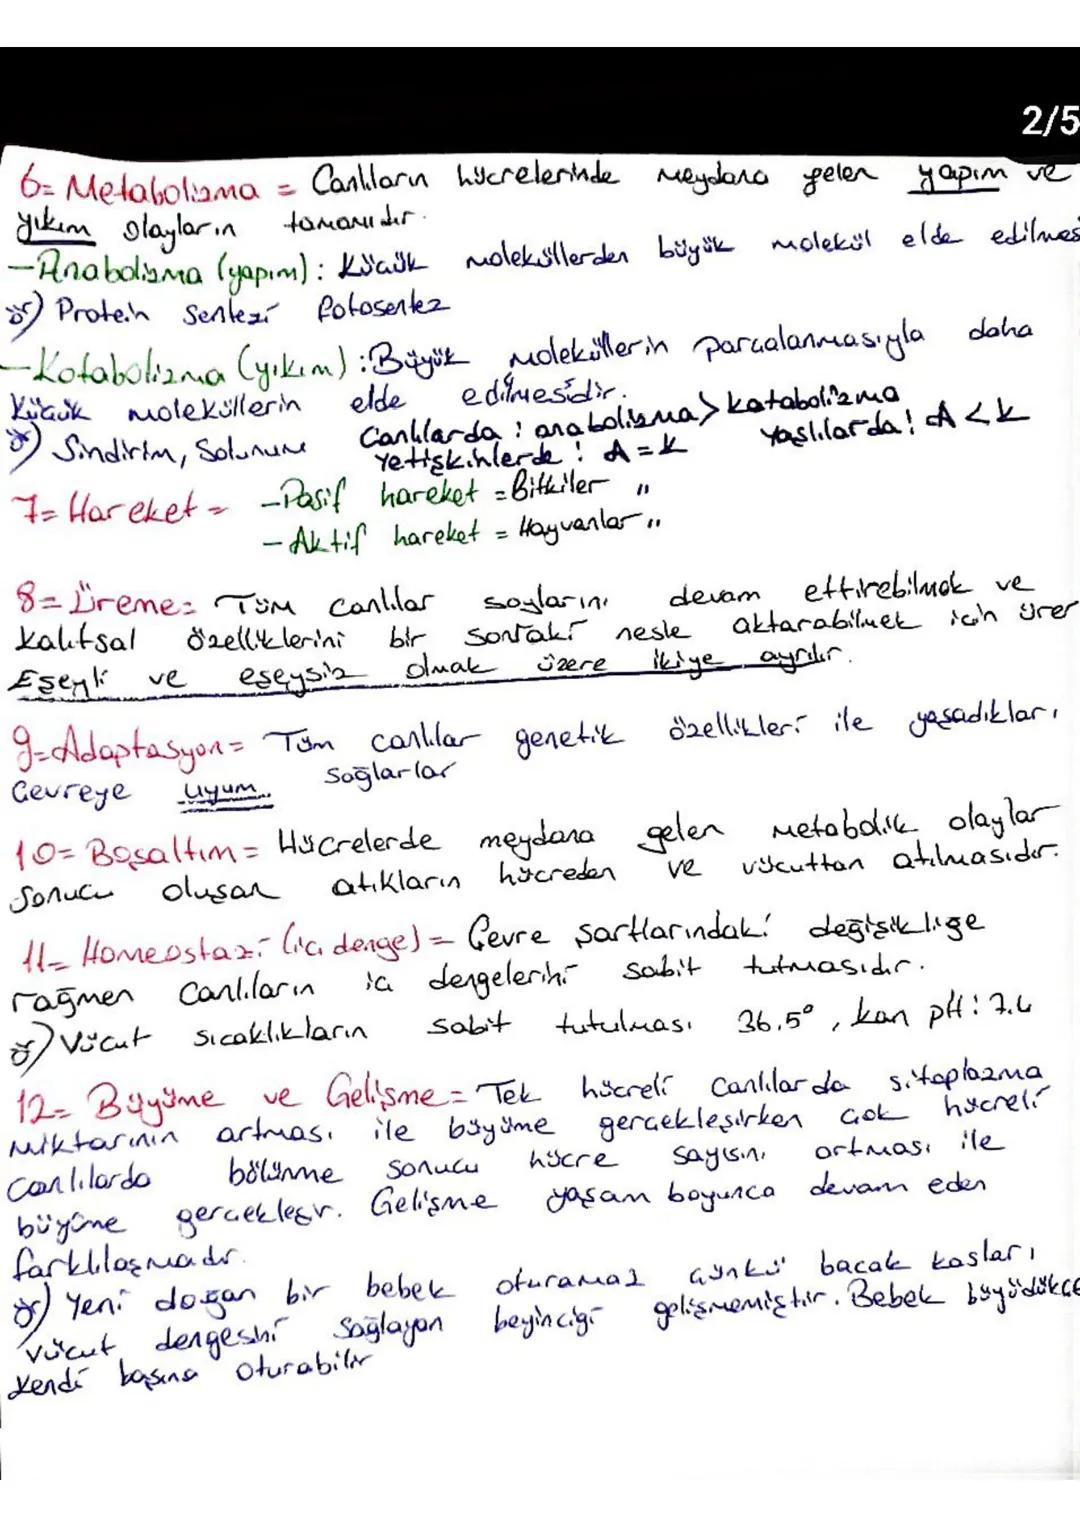 2/5
6= Metabolizma = Canlıların hücrelerinde meydana gelen yapım ve
yıkım olayların tamamıdır.
-Anabolizma (yapım): Küçük moleküllerden büyük molekül elde edilmesi
ör) Protein Sentezi fotosentez
-Katabolizma (yıkım): Büyük moleküllerin parçalanmasıyla daha
küçük moleküllerin elde edilmesidir.
ör) Sindirim, Solunum Canlılarda: anabolizma > katabolizma
Yetişkinlerde: A = k Yaşlılarda! A < k
7= Hareket = -Pasif hareket = Bitkiler "
-Aktif hareket = Hayvanlar "
8= Üreme= Tüm canlılar soylarını devam ettirebilmek ve
kalıtsal özelliklerini bir sonraki nesle aktarabilmek için ürer
Eşeyli ve eşeysiz olmak üzere ikiye ayrılır.
9=Adaptasyon= Tüm canlılar genetik özellikleri ile yaşadıkları
Çevreye uyum sağlarlar
10= Boşaltım= Hücrelerde meydana gelen metabolik olaylar
sonucu oluşan atıkların hücreden ve vücuttan atılmasıdır.
11= Homeostazi (iç denge) = Çevre şartlarındaki değişikliğe
rağmen canlıların iç dengelerini sabit tutmasıdır.
ör) Vücut sıcaklıkların sabit tutulması 36.5°, kan pH: 7.4
12= Büyüme ve Gelişme= Tek hücreli canlılarda sitoplazma
miktarının artması ile büyüme gerçekleşirken çok hücreli
canlılarda bölünme sonucu hücre sayısını artması ile
büyüme gerçekleşir. Gelişme yaşam boyunca devam eden
farklılaşmadır.
ör) Yeni doğan bir bebek oturamaz çünkü bacak kasları
vücut dengesini sağlayan beyinciği gelişmemiştir. Bebek büyüdükçe
kendi başına oturabilir